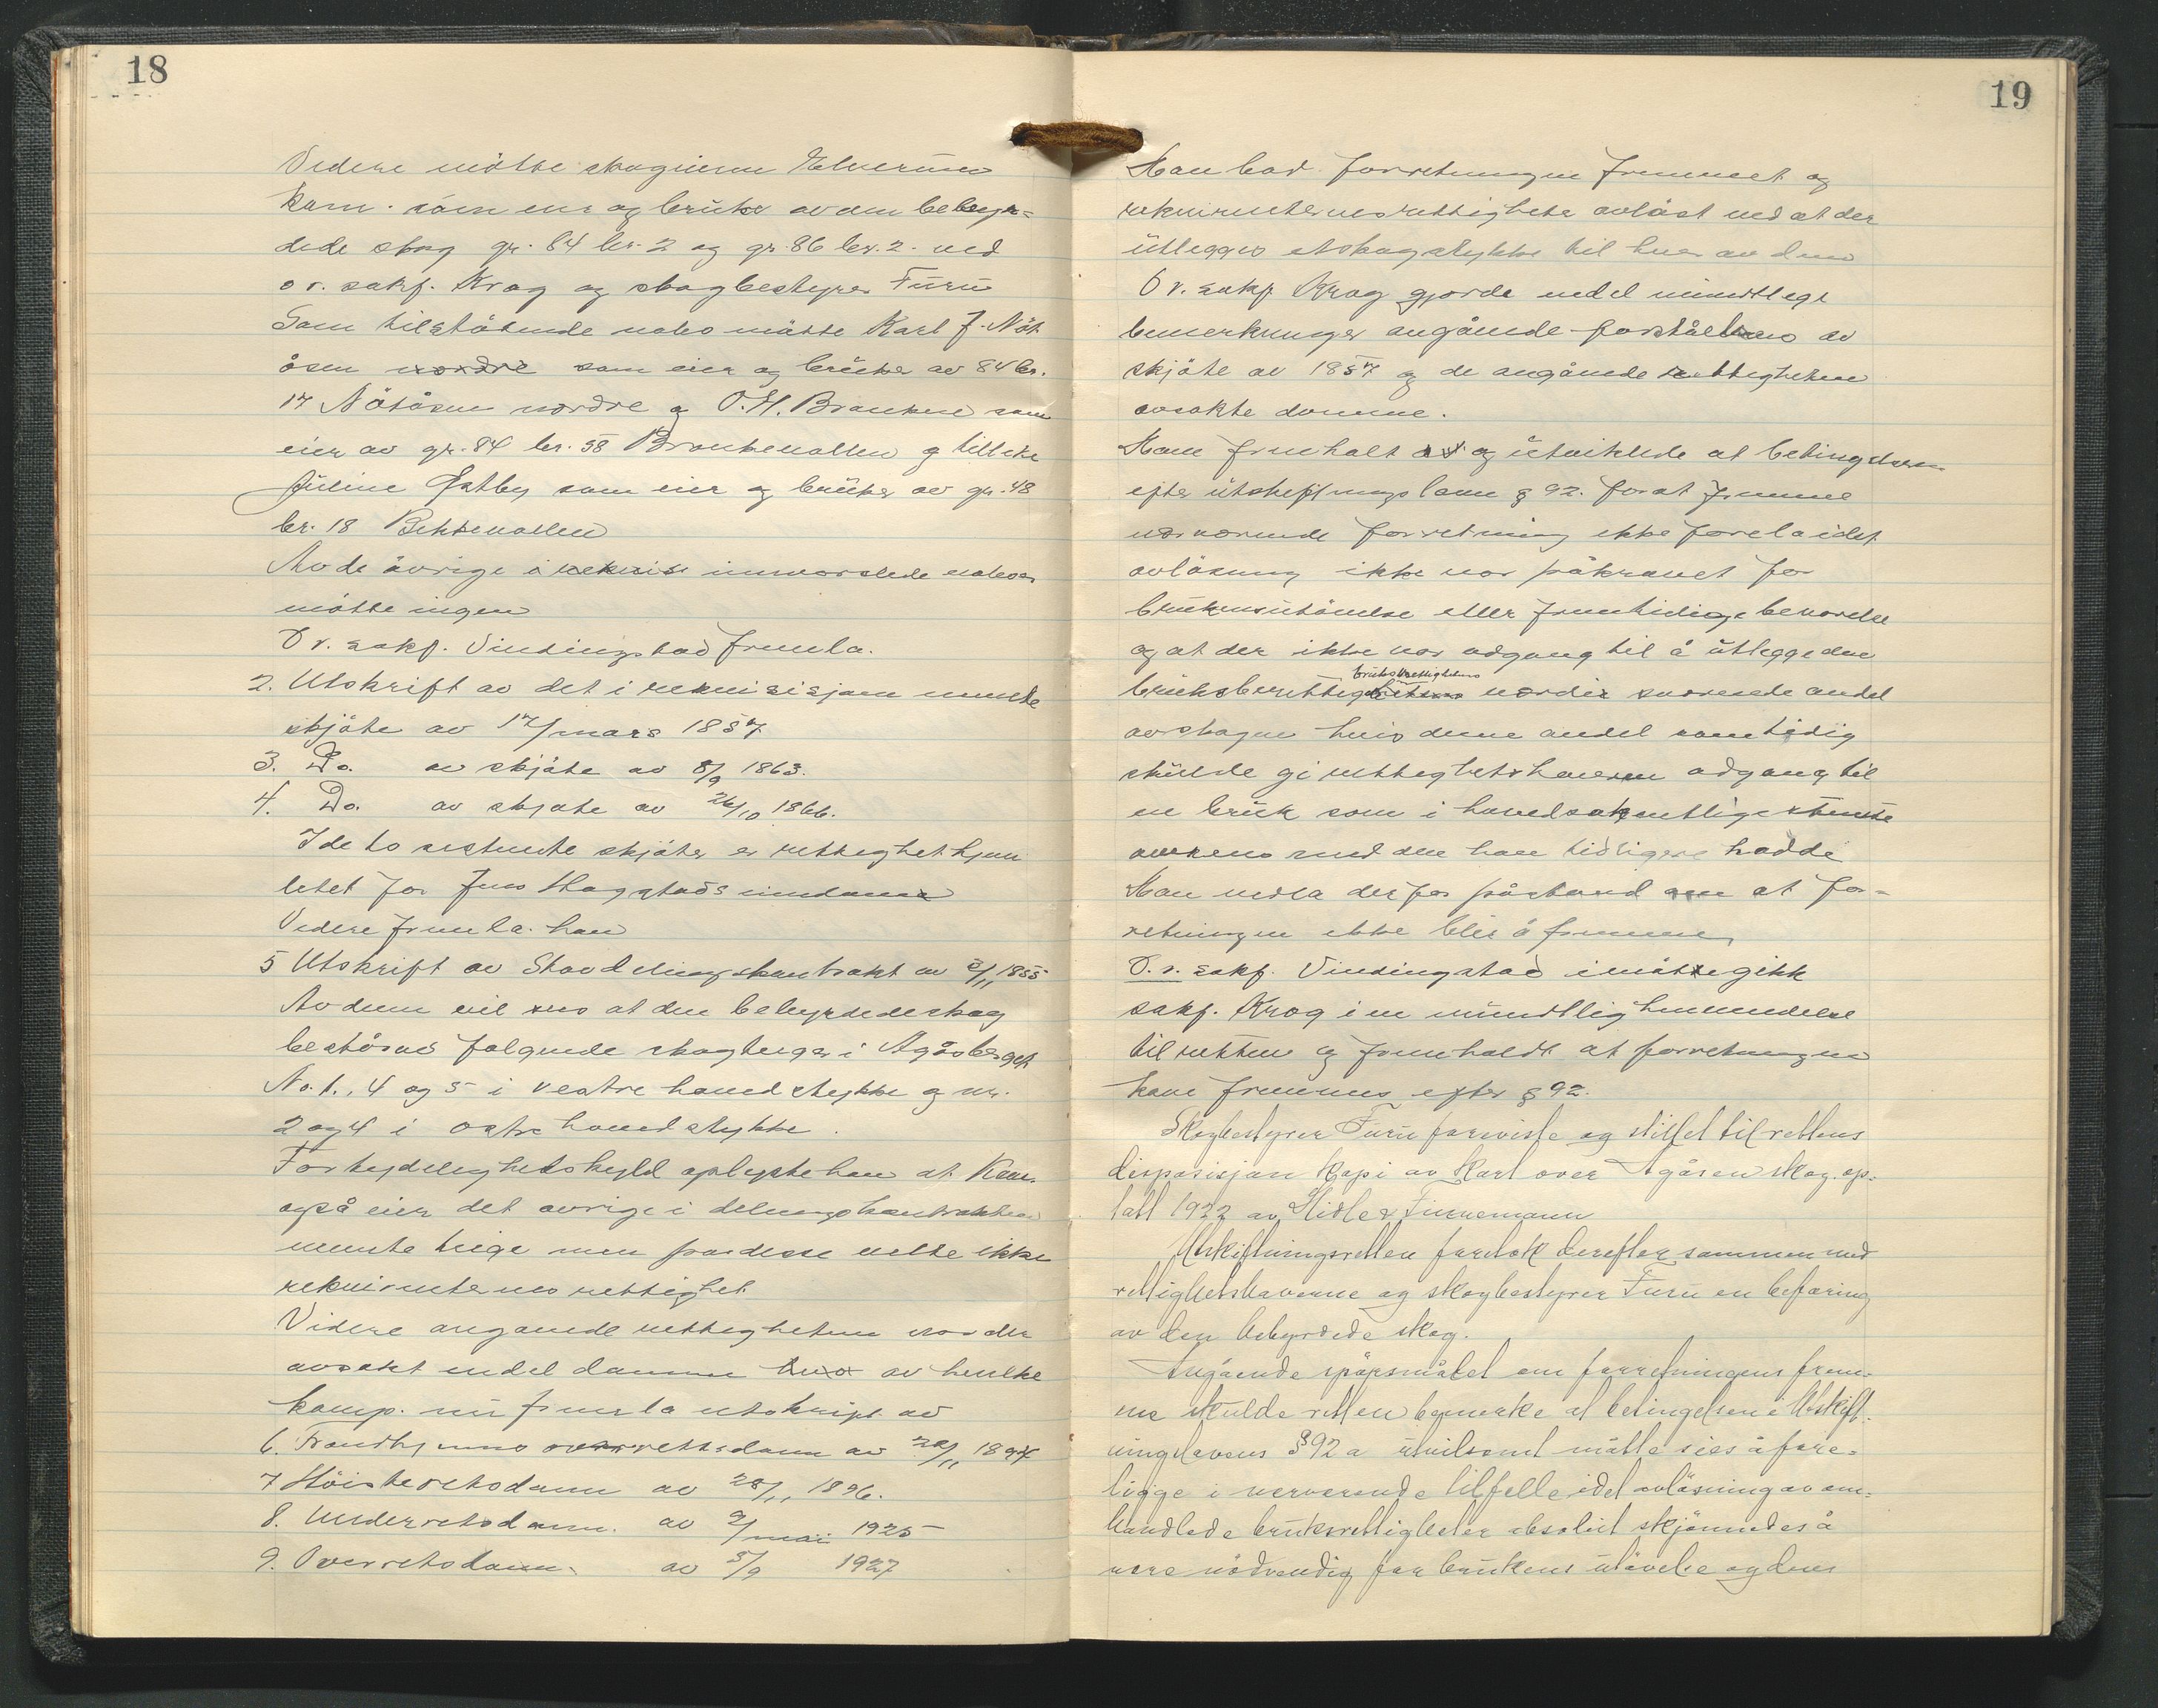 18
Videre møtte skogeieren Elverum
kom. som eier og bruker av den bebyr=
dede skog gr. 84 br. 2 og gr. 86 br. 2. ved
o r. sakf. Krog og skogbestyrer Furu
Som tilstøtende nabo møtte Karl J. Nöt
åsen nordre som eier og bruker av 84 br.
17 Nötåsen nordre og O. H. Branken som
eier av gr. 84 br. 58 Brankevollen og tillike
Juline Østby som eier og bruker av gr. 48
br. 18 Bekkevollen
Av de övrige i innvarslede naboer
møtte ingen
O r. sakf. Vindingstad fremla.
2. Utskrift av det i rekvisisjonen nevnte
skjöte av 17/mars 1857
3. Do. av skjöte av 8/9 1863.
4. Do. av skjøte av 26/10 1866.
I de to sistnevte skjöter er rettighet hjem
letet for Jens Hagstads eiendom
Videre fremla han
5 Utskrift av Skovdelingskontrakt av 3/11 1855
Av denne vil sees at den bebyrdede skog
bestårav følgende skogteiger i Agåsberget
No. 1., 4 og 5 i vestre hovedstykke og nr.
2 og 4 i østre hovedstykke.
For tydelighetskyld oplyste han at Kom.
også eier det øvrige i delingskontrakten
nevnte teige men for disse gjelder ikke
rekvirentenes rettighet
Videre angående rettigheten var der
avsakt endel domme av hvilke
komp. nu fremla utskrift av
6. Trondhjems overrettsdom av 20/11 1894
7 Höiesteretsdom av 28/11 1896.
8. Underretsdom. av 9/mai 1925
9. Overretsdom. av 5/9 1927
19
Man bad forretningen fremmet og
rekvirentenes rettigheter avlöst ved at der
utlegges et skogstykke til hver av dem
O r. sakf Krog gjorde endel muntlige
bemerkninger angående forståelsen av
skjöte av 1857 og de angående rettigheten
avsakte domme.
Man fremholt og utviklede at betingelsen
efter utskiftningsloven § 92. for at fremme
nærværende forretning ikke forela idet
avlösning ikke var påkrævet for
brukensutövelse eller fremtidige bevarelse
og at der ikke var adgang til å utlegge den
bruksrettighetens
bruksberettigede verdi svarende andel
av skogen hvis denne andel samtidig
skulde gi rettighetshaveren adgang til
en bruk som i hovedsakentlige stemte
overens med den han tidligere hadde
Man nedla derfor påstand om at for=
retningen ikke blir å fremme,
O. r. sakf. Vindingstad imøtegikk
sakf. Krog i en muntlig henvendelse
til retten og fremholdt at forretningen
kan fremmes efter § 92.
Skogbestyrer Furu foreviste og stillet til rettens
disposisjon kopi av kart over Agåsen skog. op=
tatt 1922 av Finnemann
Utskiftningsretten foretok derefter sammen med
rettighetshaverne og skogbestyrer Furu en befaring
av den bebyrdede skog.
Angående spörsmålet om forretningens frem=
me skulde retten bemerke at betingelsen i Utskift=
ningslovens § 92 a utvilsomt måtte sies å fore=
ligge i nærværende tilfelle idet avløsning av om=
handlede bruksrettigheter absolut skjönnedes å
være nödvendig for brukens utövelse og dens